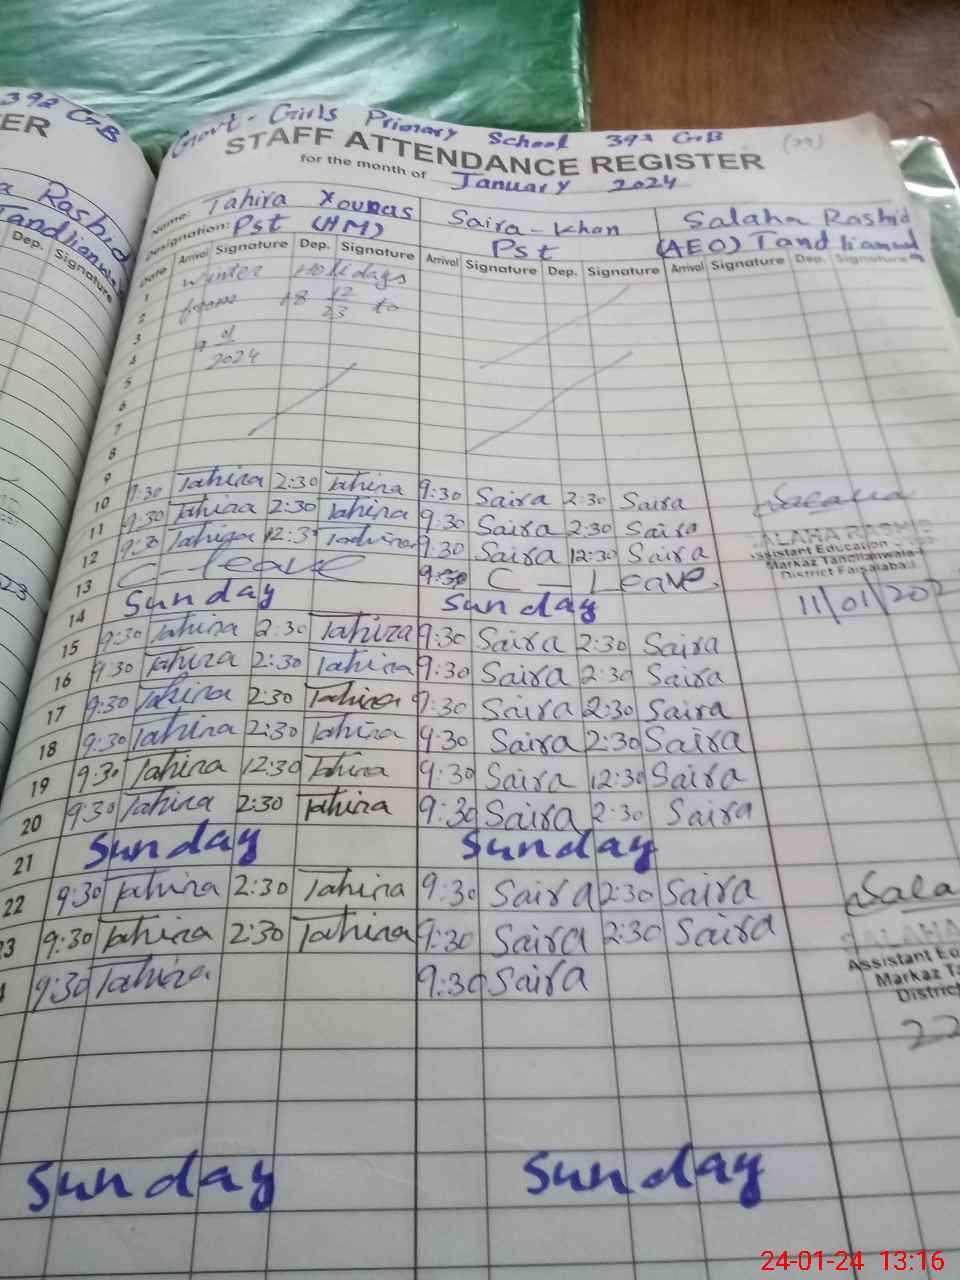 392 GB
ER
Rashid
Tandlianwa
Dep. Signature
Govt. Girls Primary School 392 GB (29)
STAFF ATTENDANCE REGISTER
for the month of January 2024
Name: Tahira Younas Saira-Khan Salaha Rashid
Designation: Pst (HM) Pst (AEO) Tandlianwala
Date Arrival Signature Dep. Signature Arrival Signature Dep. Signature Arrival Signature Dep. Signature
1 Winter Holidays
2 from 18 12/23 to
3
4 9 01/2024
5
6
7
8
9
10 9:30 Tahira 2:30 Tahira 9:30 Saira 2:30 Saira
11 9:30 Tahira 2:30 Tahira 9:30 Saira 2:30 Saira
12 9:30 Tahira 12:30 Tahira 9:30 Saira 12:30 Saira
13 C-leave 9:30 C-Leave.
14 Sunday Sunday
15 9:30 Tahira 2:30 Tahira 9:30 Saira 2:30 Saira
16 9:30 Tahira 2:30 Tahira 9:30 Saira 2:30 Saira
17 9:30 Tahira 2:30 Tahira 9:30 Saira 2:30 Saira
18 9:30 Tahira 2:30 Tahira 9:30 Saira 2:30 Saira
19 9:30 Tahira 12:30 Tahira 9:30 Saira 12:30 Saira
20 9:30 Tahira 2:30 Tahira 9:30 Saira 2:30 Saira
21 Sunday Sunday
22 9:30 Tahira 2:30 Tahira 9:30 Saira 2:30 Saira
23 9:30 Tahira 2:30 Tahira 9:30 Saira 2:30 Saira
9:30 Tahira 9:30 Saira
Sunday Sunday
Salaha
SALAHA RASHID
Assistant Education
Markaz Tandlianwala-
District Faisalabad
11/01/202
Sala
SALAHA
Assistant Ed
Markaz Ta
District
22
24-01-24 13:16